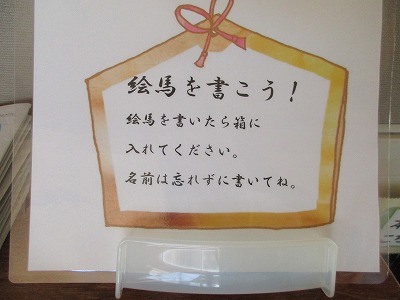 絵馬を書こう！
絵馬を書いたら箱に
入れてください。
名前は忘れずに書いてね。